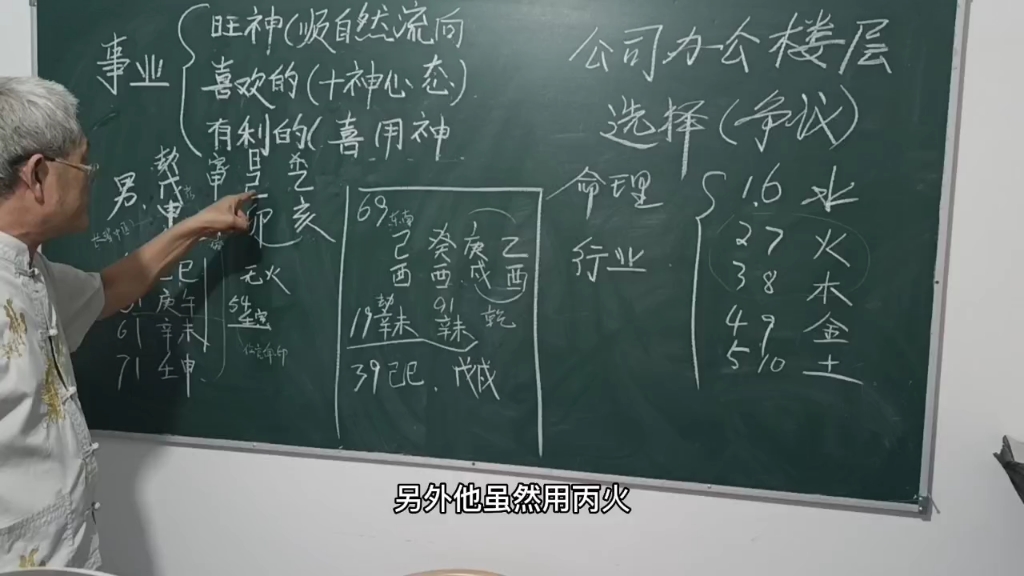 事业
旺神(顺自然流向
喜欢的(十神心态)
有利的(喜用神
男
戊
申
乙
卯
亥
巳
庚午
61 辛未
71 壬申
无火
54
69
己 癸 庚 乙
酉 酉 戌 酉
19 辛未
91 辛未
乾
39己巳.戊戌
公司办公楼层
选择(争议)
命理
行业
1.6 水
2 7 火
3 8 木
4 9 金
5 10 土
另外他虽然用丙火